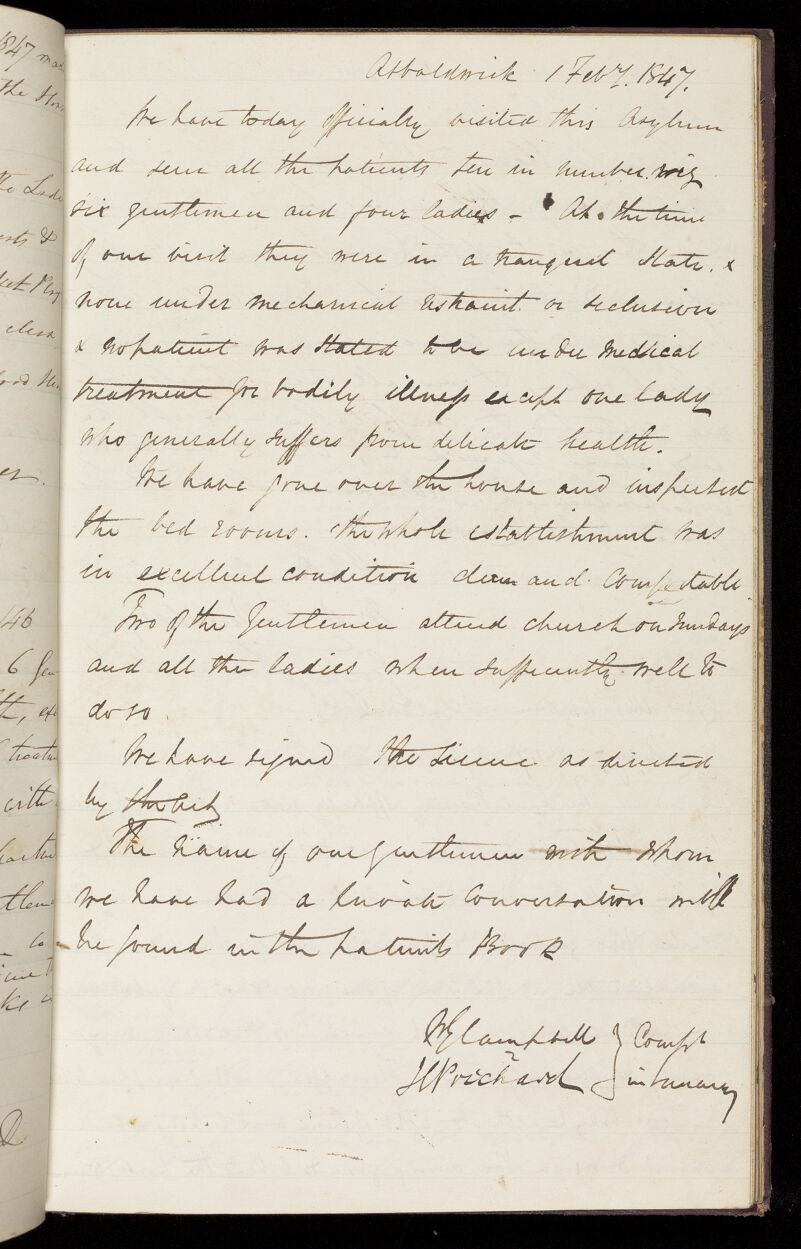 1847 ma
the Hou
Osbaldwick 1 Feby. 1847.
We have today officially visited this Asylum
and seen all the patients ten in number. viz
six gentlemen and four ladies - At the time
of our visit they were in a tranquil state. &
none under mechanical restraint or seclusion
& no patient was stated to be under medical
treatment for bodily illness except one lady
who generally suffers from delicate health.
We have gone over the house and inspected
the bed rooms. the whole establishment was
in excellent condition clean and comfortable
Two of the Gentlemen attend church on Sundays
and all the ladies when sufficiently well to
do so.
We have signed the License as directed
by the Act
The name of one gentleman with whom
we have had a private conversation will
be found in the patients Book
WG Campbell } Comrs
JC Prichard } in Lunacy